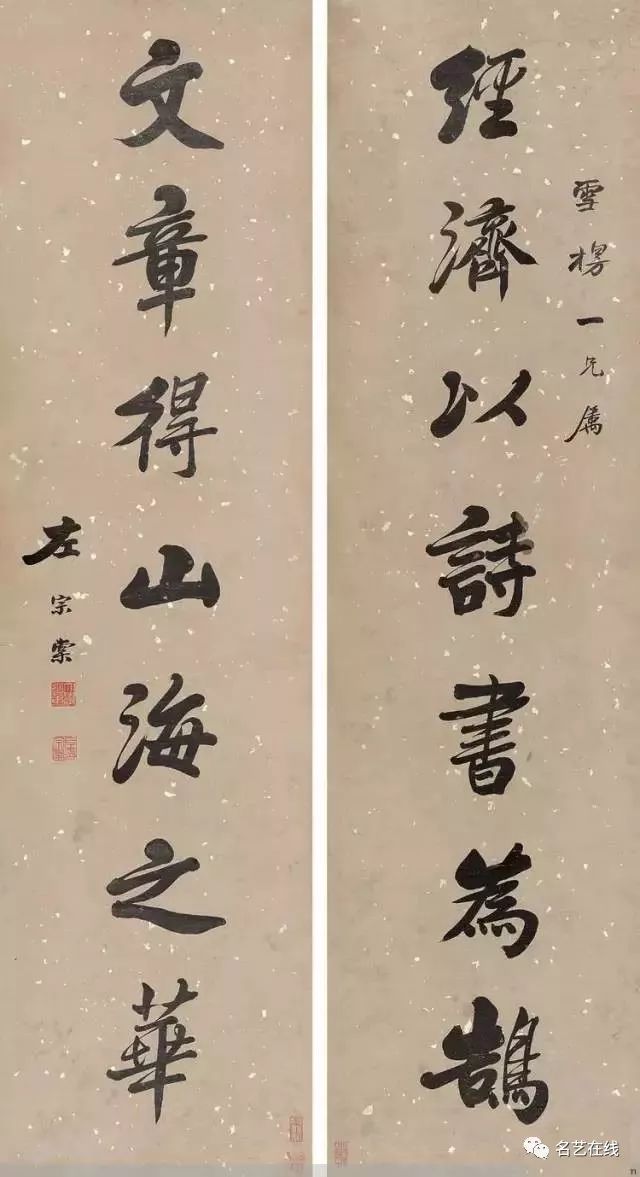 雪樗一兄屬
經濟以詩書為鵠
文章得山海之華
左宗棠
名艺在线